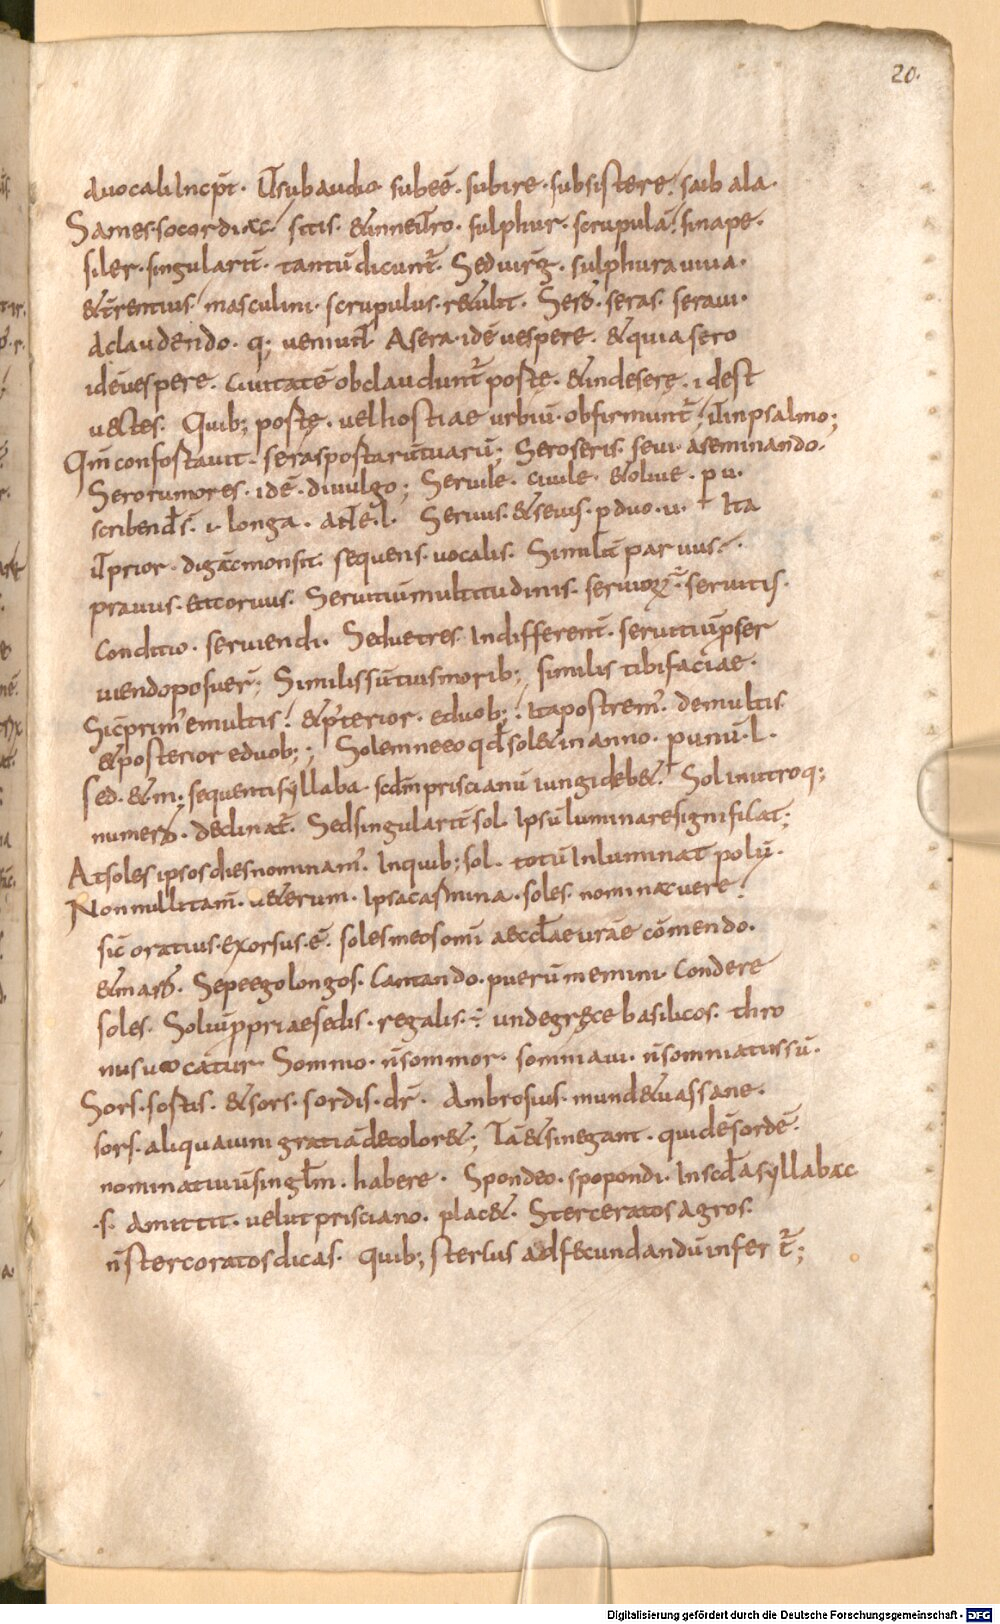 20.
auocali Incp̄t. Ut̄ subaudio subeē. subire. subsistere. saib ala.
Sames. socordiac. sitis. & inneut̄ro. sulphur. scrupula. sinape.
siler. singularit̄. tantū dicunt̄. Sed virḡ. sulphura uiua.
& t̄rentius masculini. scrupulus. r&ulit. Sero. seras. seraui.
Aclaudendo. q; ueniut̄. Asera. idē uespere. & quia sero
idē uespere. Ciuitatē obclaudunt̄ portę. & indeserę. i dest
uectes. Quib; portę. uel hostiae urbiū. obfirmunt̄. ut̄ in psalmo;
Qm̄ confortauit. seras portarū tuarū; Sero seris. seui. aseminando.
Sero rumores. idē. diuulgo; Seruile. ciuile. & oliue. p u.
scribend̄ s̄. i. longa. ante. l. Seruus. & seuis. p duo. u. Ita
ut̄ prior. digāmon sit. sequens. uocalis. Similit̄ paruus.
prauus. & coruus. Seruitiū multitudinis. seruorꝝ. seruitis.
Conditio. seruiendi. Sed uetres. Indifferent̄. seruitiū p ser
uiendo posuer̄; Similis sū tuis morib; similis tibi faciae.
Sic̄ prim̄ emultis. & p̄terior. eduob; Ita postrem̄. demultis
& posterior eduob;; Solemne eo qd̄ sol& in anno. p unū. l.
Sed. & m; sequenti syllaba. scd̄m priscianū iungi deb&. Sol inutroq;
numero. declinat̄. Sed singularit̄ sol. Ipsū luminare significat;
At soles ipsos dies nominam̄. Inquib; sol. totū Inluminat polū.
Nonnulli tam̄. u&erum. Ipsa carmina. soles. nominauere.
sic̄ oratius. exorsus. ē. soles meos om̄i aeccl̄ae urāe cōmendo.
& maro. Sepe ego longos. Cantando. puerū memini Condere
soles. Soliū p priae sedis. regalis. ÷ unde gręce basilicos. thro
nus uocatur. Somnio. n̄ somnior. somniaui. n̄ somniatus sū.
Sors. sortis. & sors. sordis. dr̄. Ambrosius. mund&uassane.
sors. aliqua uini gratiā decolor&; Tā & si negant. qui dē sordē.
nominatiuū singl̄m. habere. Spondeo. spopondi. In scd̄a syllabac
.s. Amittit. uelut prisciano. plac&. Sterceratos Agros.
n̄ stercoratos dicas. Quib; stersus ad fecundandū infer t̄;
Digitalisierung gefördert durch die Deutsche Forschungsgemeinschaft - DFG